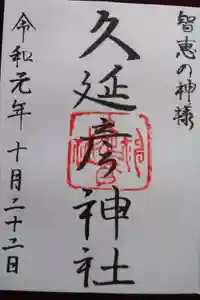 智恵の神様
久延彦神社
令和元年十月二十二日